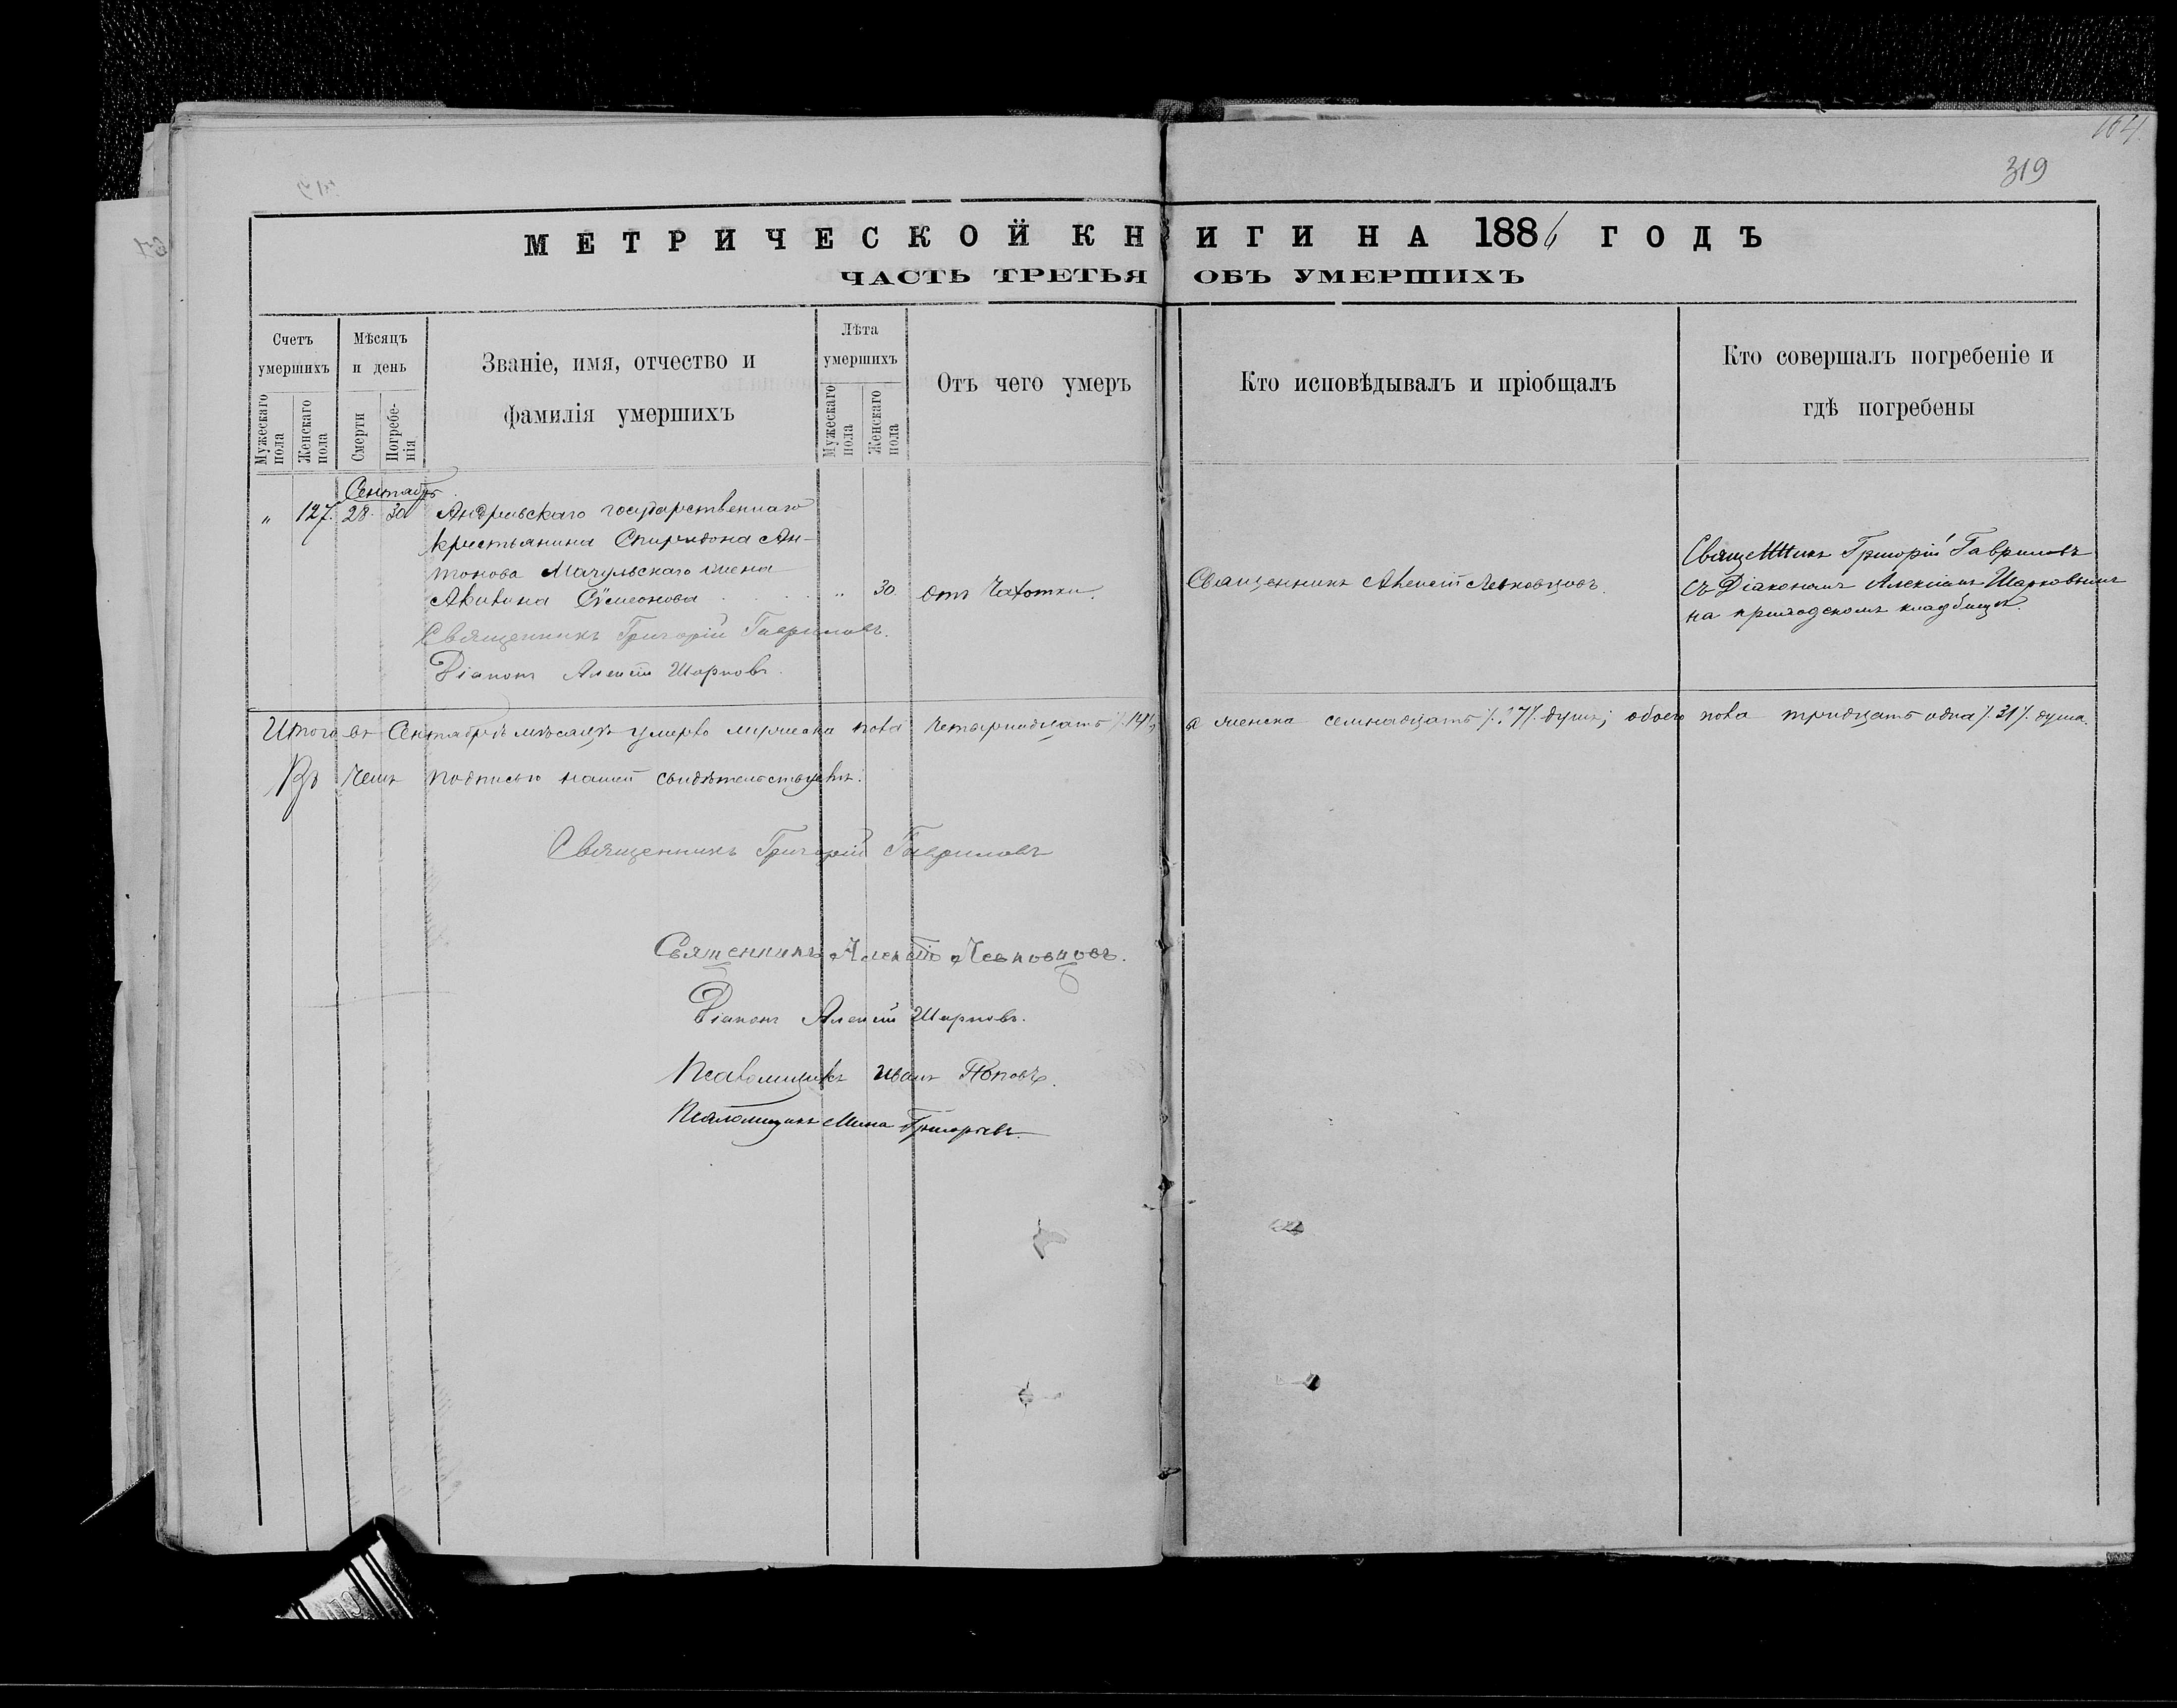 164
319
МЕТРИЧЕСКОЙ КНИГИ НА 1886 ГОДЪ
ЧАСТЬ ТРЕТЬЯ ОБЪ УМЕРШИХЪ
Счетъ умершихъ
Мужескаго пола
Женскаго пола
Мѣсяцъ и день
Смерти
Погребенія
Званіе, имя, отчество и
фамилія умершихъ
Лѣта умершихъ
Мужескаго пола
Женскаго пола
Отъ чего умеръ
Кто исповѣдывалъ и пріобщалъ
Кто совершалъ погребеніе и
гдѣ погребены
Сентябрь
" 127. 28. 30. Андреевскаго государственнаго
крестьянина Спиридона Ан-
тонова Мачульскаго жена
Акилина Сѵмеонова " 30. отъ Чахотки.
Священникъ Алексій Левковцовъ.
Священникъ Григорій Гавриловъ
съ Діакономъ Алексіемъ Шарковымъ
на приходскомъ кладбищѣ.
Священникъ Григорій Гавриловъ.
Діаконъ Алексій Шарковъ.
Итого въ Сентябрѣ мѣсяцѣ умерло мужеска пола четырнадцать /.14/., а женска семнадцать /.17/. душъ; обоего пола тридцать одна /.31/. душа.
Въ чемъ подписью нашей свидѣтельствуемъ.
Священникъ Григорій Гавриловъ
Священникъ Алексій Левковцовъ.
Діаконъ Алексій Шарковъ.
Псаломщикъ Иванъ Поповъ.
Псаломщикъ Мина Григорьевъ.